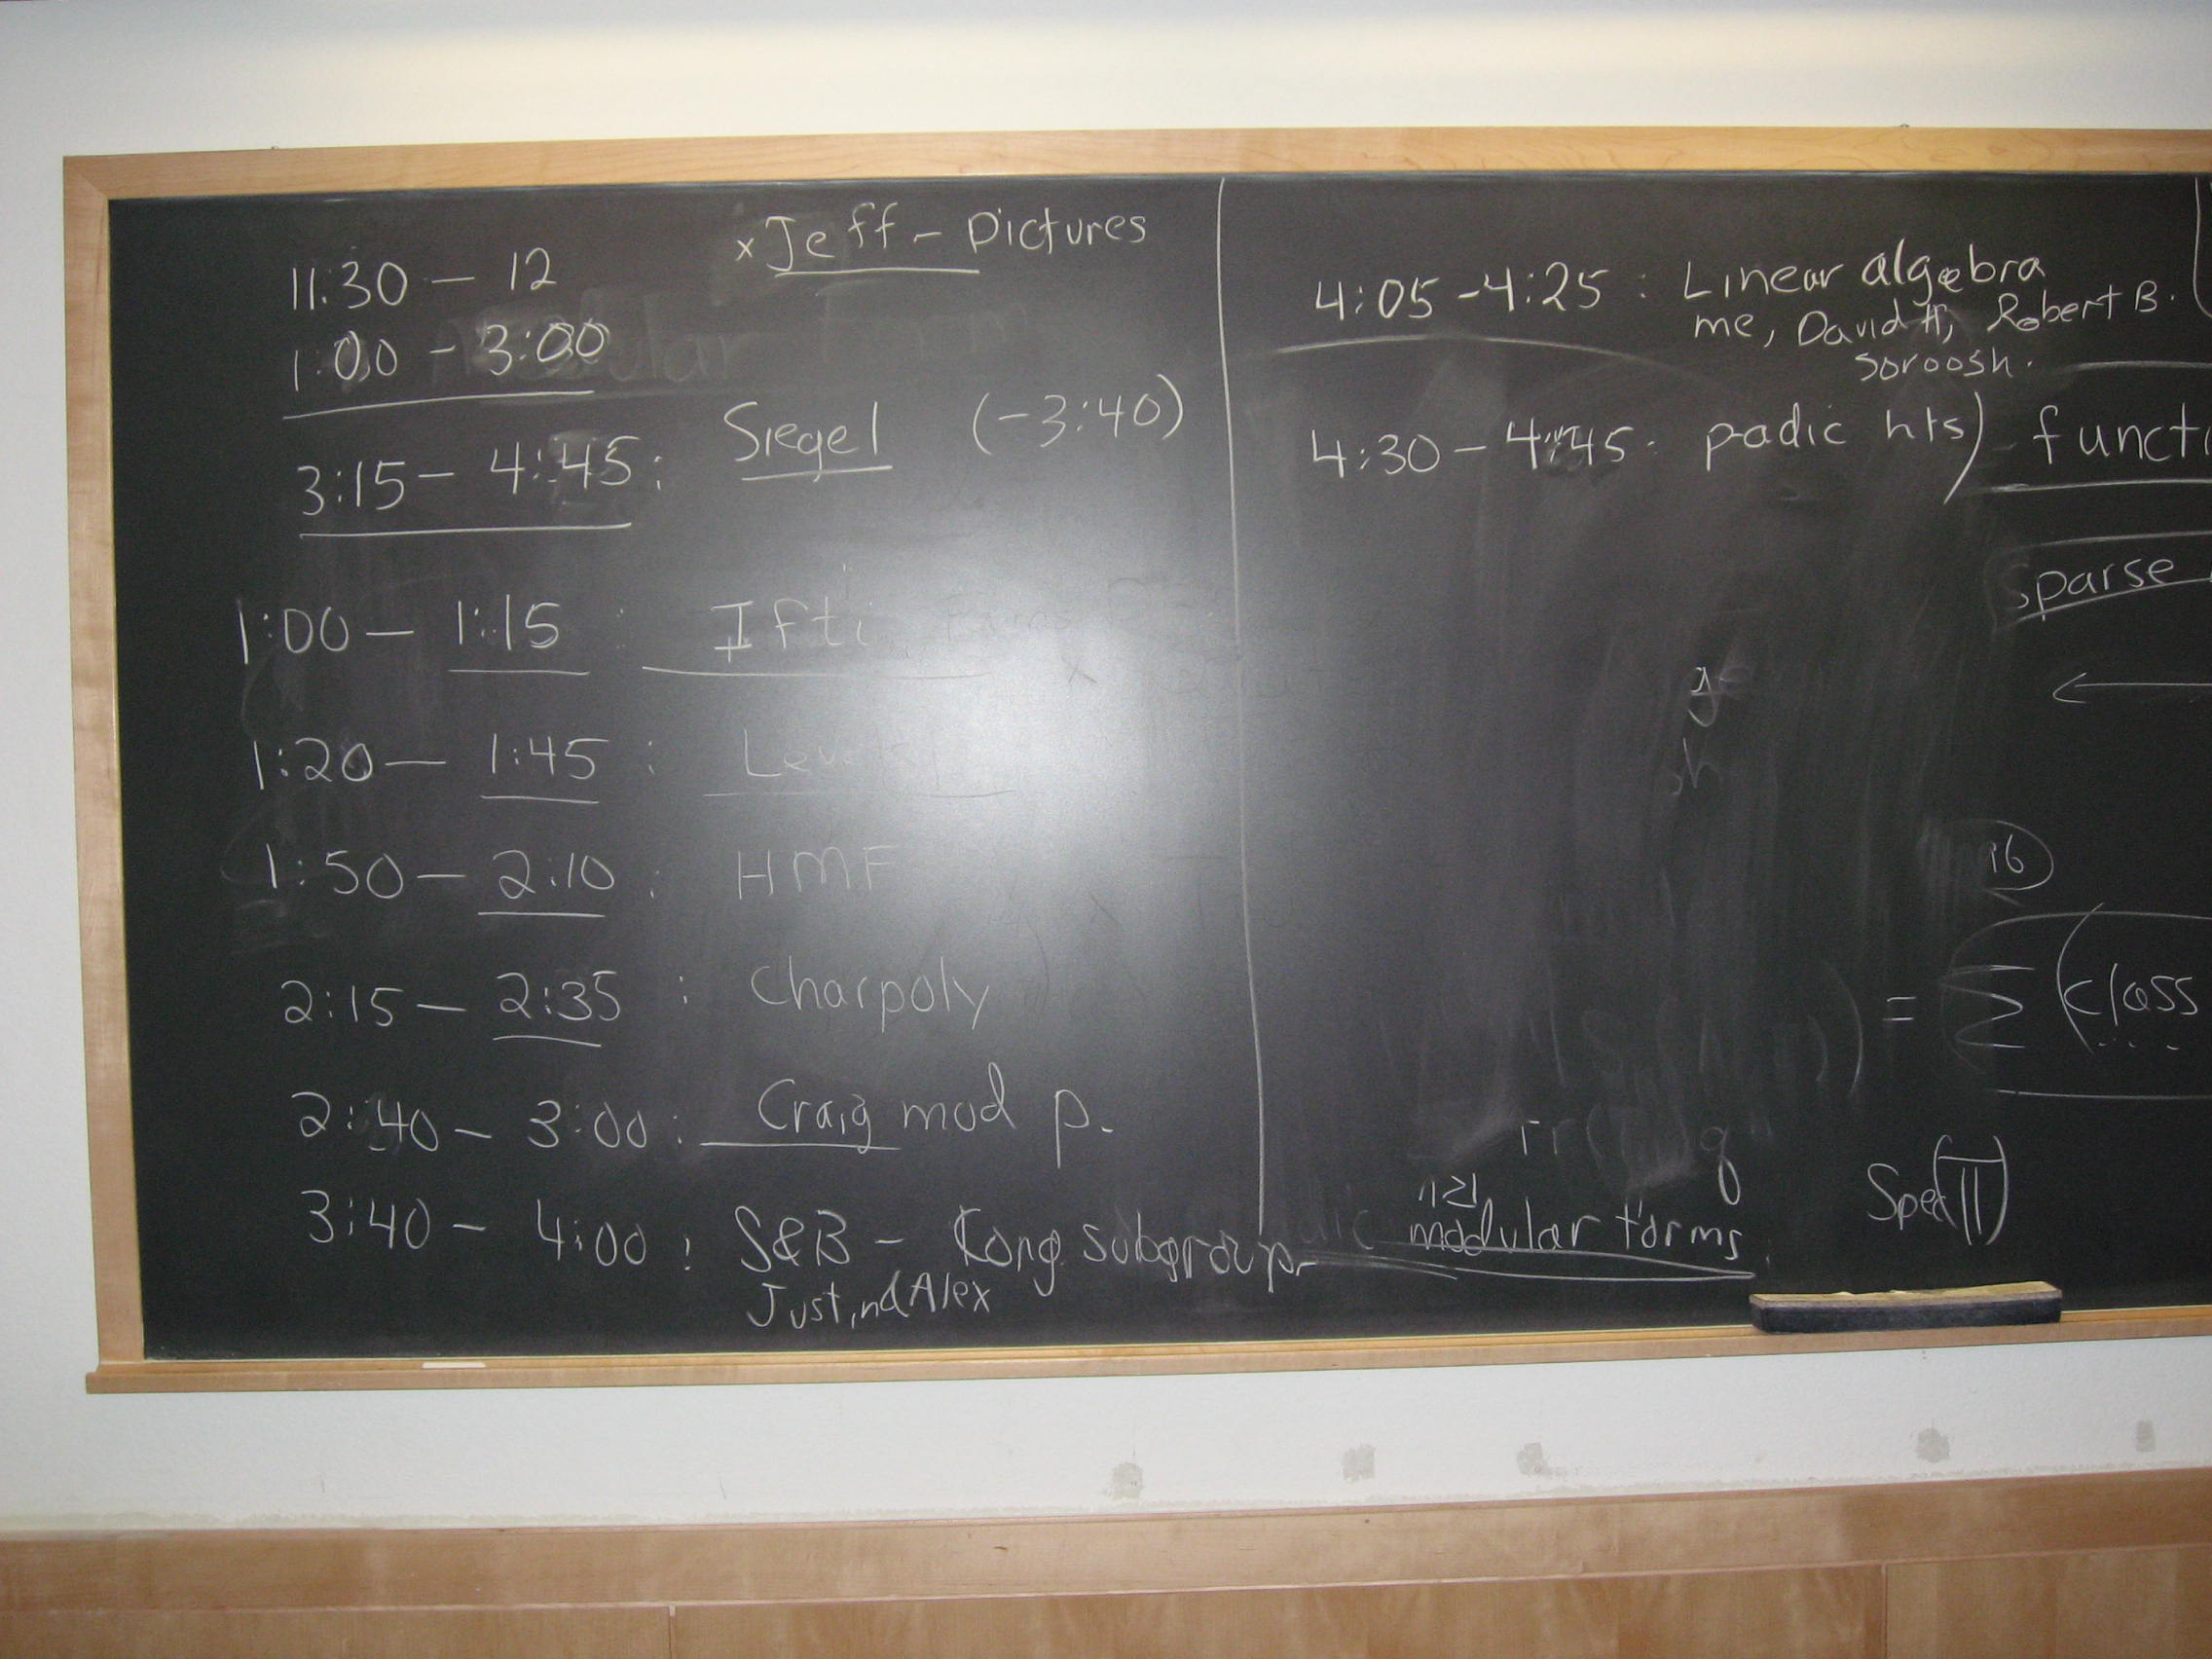 11:30 – 12
× Jeff – Pictures
1:00 – 3:00
3:15 – 4:45: Siegel (–3:40)
1:00 – 1:15 : Ifti
1:20 – 1:45 :
1:50 – 2:10 : HMF
2:15 – 2:35 : Charpoly
2:40 – 3:00: Craig mod p.
3:40 – 4:00: S&B – Kong subgroup
Justin & Alex
4:05 – 4:25 : Linear algebra
me, David H, Robert B.
Soroosh.
4:30 – 4:45: padic hts)
functi
sparse
g
h
16
= Σ (class
n≥1 q
modular forms
Spec(𝕋)